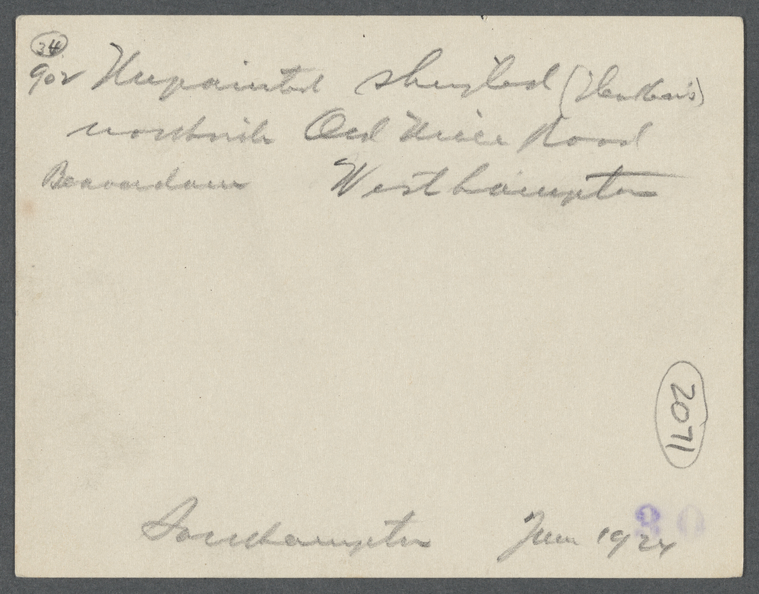 34
902 Unpainted shingled
northside Old Mill Road
Beaverdam Westhampton
2071
Southampton June 1924
30